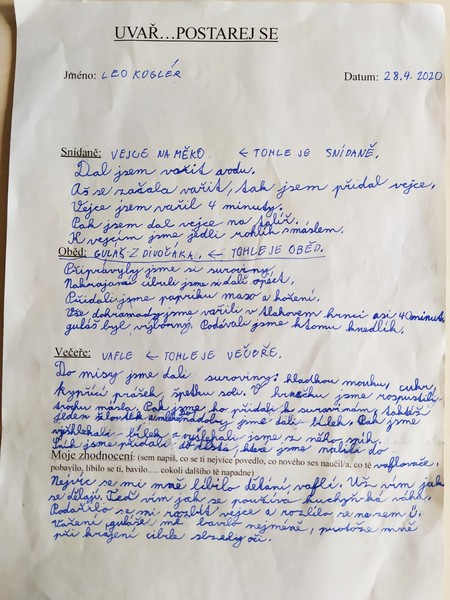 UVAŘ...POSTAREJ SE
Jméno: LEO KOGLÉR Datum: 28.4. 2020
Snídaně: VEJCE NA MĚKO. ← TOHLE JE SNÍDANĚ.
Dal jsem vařit vodu.
Až se začala vařit, tak jsem přidal vejce.
Vejce jsem vařil 4 minuty.
Pak jsem dal vejce na talíř.
K vejcím jsme jedli rohlík s máslem.
Oběd: GULÁŠ Z DIVOČÁKA. ← TOHLE JE OBĚD.
Připravyly jsme si suroviny.
Nakrájenou cibuli jsme si dali opéct.
Přidali jsme papriku maso a koření.
Vše dohramady jsme vařili v tlakovem hrnci asi 40 minut.
guláš byl výborný. Podával jsme k tomu knedlík.
Večeře: VAFLE ← TOHLE JE VEČEŘE.
Do mísy jsme dali suroviny: hladkou mouku, cukr,
kypřící prášek, špetku soli. V hrnečku jsme rozpustili
trochu másla. Pak jsme ho přidali k surovinám, taktéž
jeden žloutek a mléko dali bílek. Pak jsme
vyšlehali bílek a vyšlehali jsme z něho sníh.
Sníh jsme přidali do těsta, které jsme nalili do
Moje zhodnocení: (sem napiš, co se ti nejvíce povedlo, co nového ses naučil/a, co tě vaflovače.
pobavilo, líbilo se ti, bavilo.... cokoli dalšího tě napadne)
Nejvíc se mi mně líbilo dělání vaflí. Už vím jak
se dělají. Teď vím jak se používá kuchyňská váha.
Podařilo se mi rozbít vejce a rozlilo se na zem
Vaření guláše mě bavilo nejméně, protože mně
při krájení cibule slzely oči.